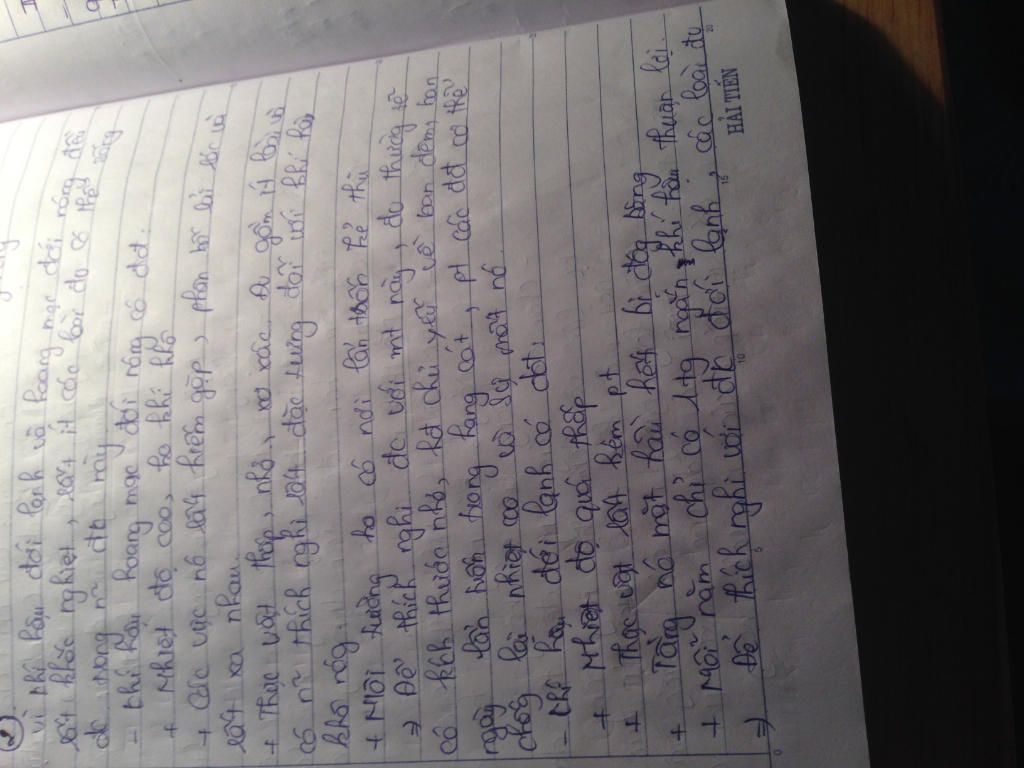 2
Vì khí hậu đới lạnh và hoang mạc đới nóng đều
rất khắc nghiệt, rất ít các loài đv có thể sống
đc trong n~ đk này
- Khí hậu hoang mạc đới nóng có đđ:
+ Nhiệt độ cao, ko khí khô
+ Các vực nc rất hiếm gặp, phân bố rải rác và
rất xa nhau
+ Thực vật thấp, nhỏ, xơ xác. Đv gồm ít loài và
có n~ thích nghi rất đặc trưng đối với khí hậu
khô nóng
+ Môi trường ko có nơi lẩn trốn kẻ thù
=> Để thích nghi đc với mt này, đv thường sẽ
có kích thước nhỏ, hđ chủ yếu về ban đêm, ban
ngày lẩn trốn trong hang cát, pt các đđ cơ thể
chống lại nhiệt cao và sự mất nc
- Khí hậu đới lạnh có đđ:
+ Nhiệt độ quá thấp
+ Thực vật rất kém pt
+ Tầng nc mặt hầu hết bị đóng băng
+ Mỗi năm chỉ có tg ngắn khí hậu thuận lợi
=> Để thích nghi với đk đới lạnh, các loài đv
0 5 10 15 20
HẢI TIẾN